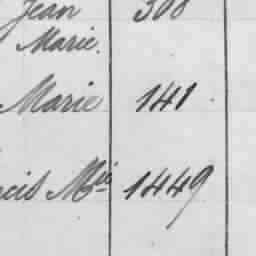 Jean 308
Marie.
Marie 141
Mie 1449